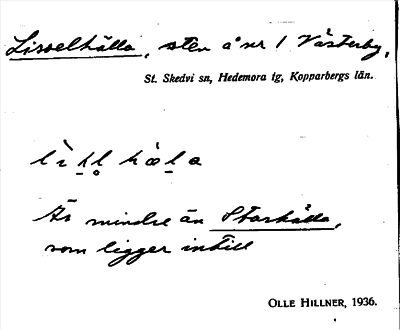 Lisselhälla, sten å nr 1 Västerby,
St. Skedvi sn, Hedemora tg, Kopparbergs län.
Är mindre än Storhälla,
som ligger intill
OLLE HILLNER, 1936.